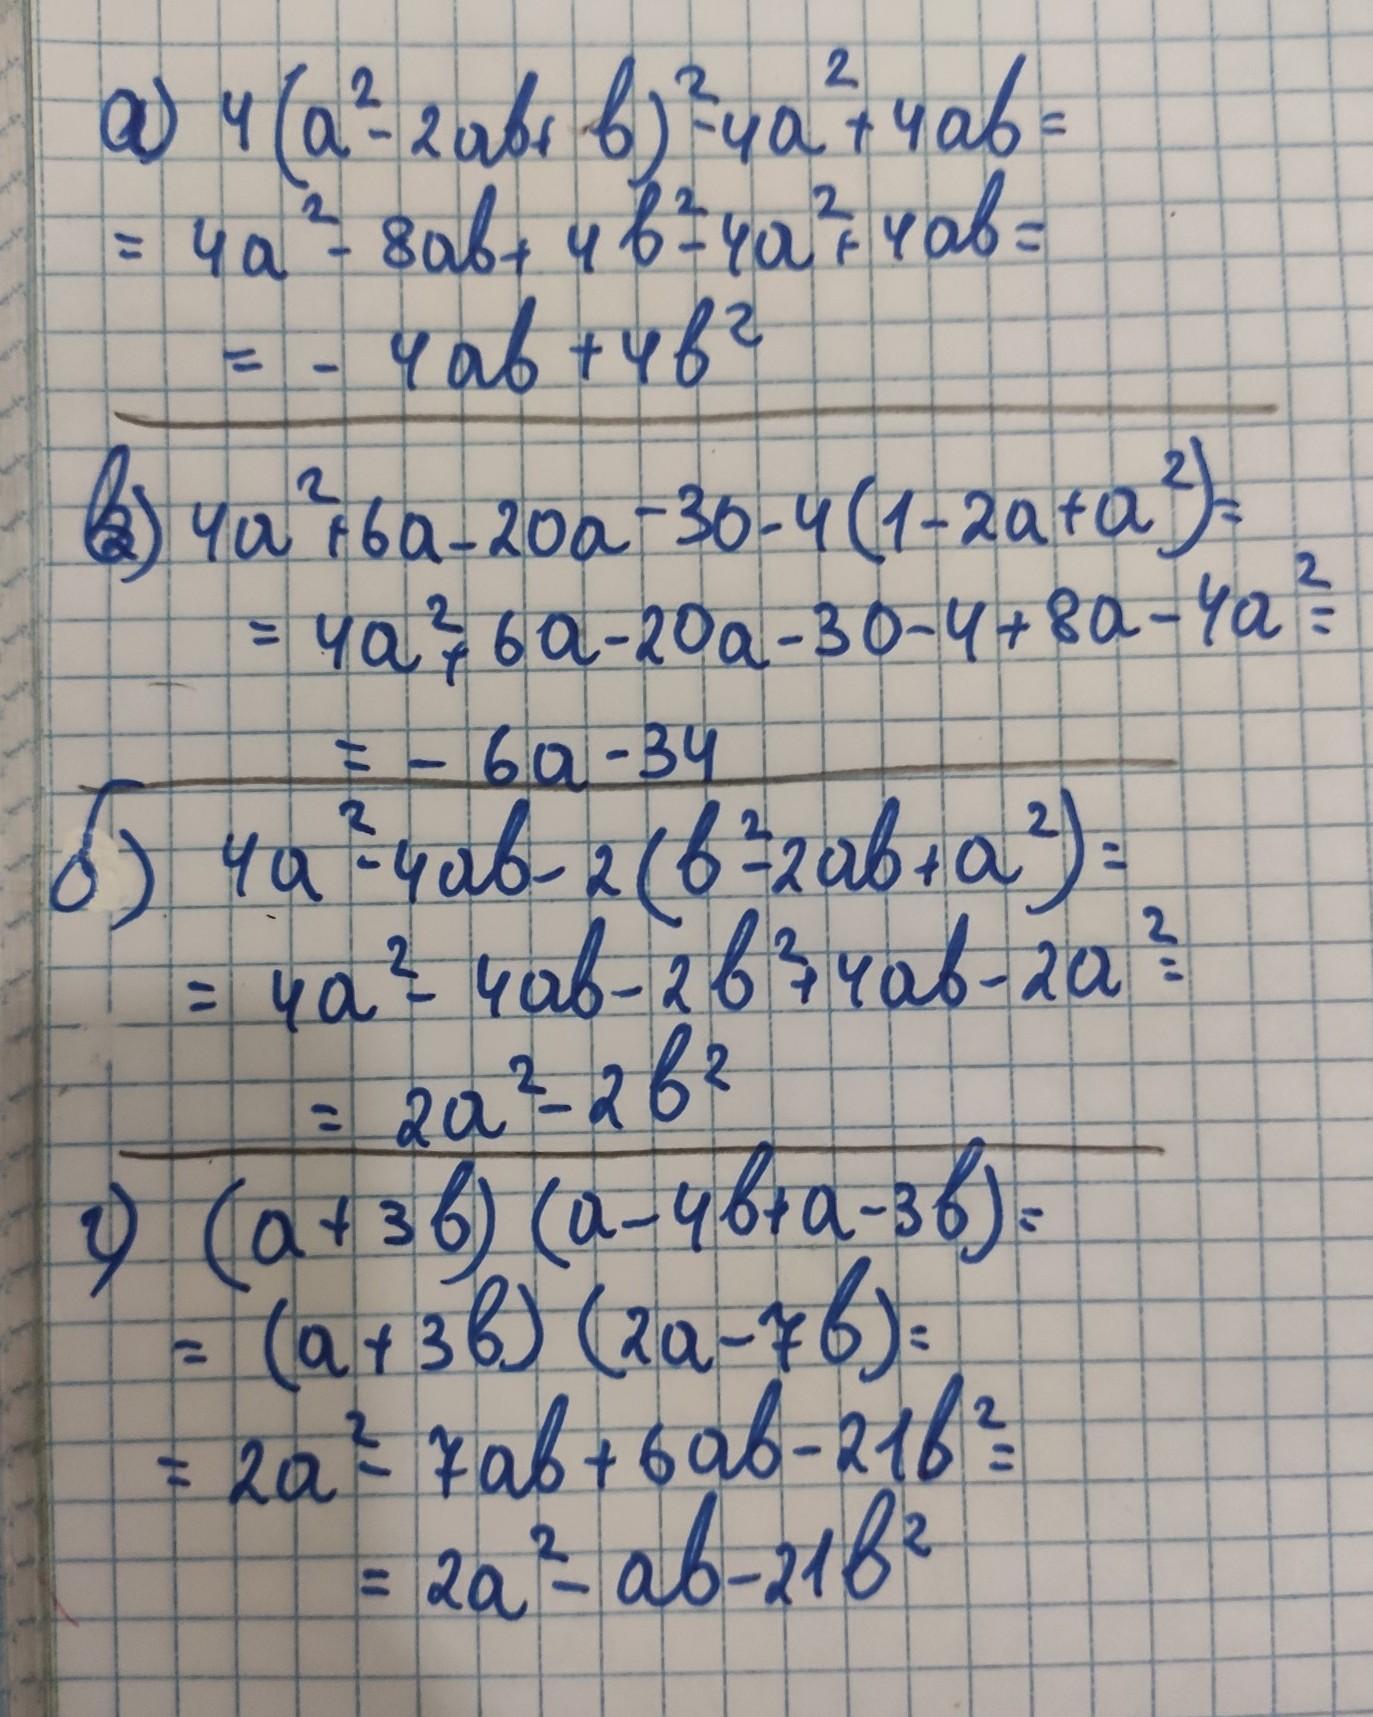 а) 4(a²-2ab+b)²-4a²+4ab=
= 4a²-8ab+4b²-4a²+4ab=
= -4ab+4b²
в) 4a²+6a-20a-30-4(1-2a+a²)=
= 4a²+6a-20a-30-4+8a-4a²=
= -6a-34
б) 4a²-4ab-2(b²-2ab+a²)=
= 4a²-4ab-2b²+4ab-2a²=
= 2a²-2b²
г) (a+3b)(a-4b+a-3b)=
= (a+3b)(2a-7b)=
= 2a²-7ab+6ab-21b²=
= 2a²-ab-21b²